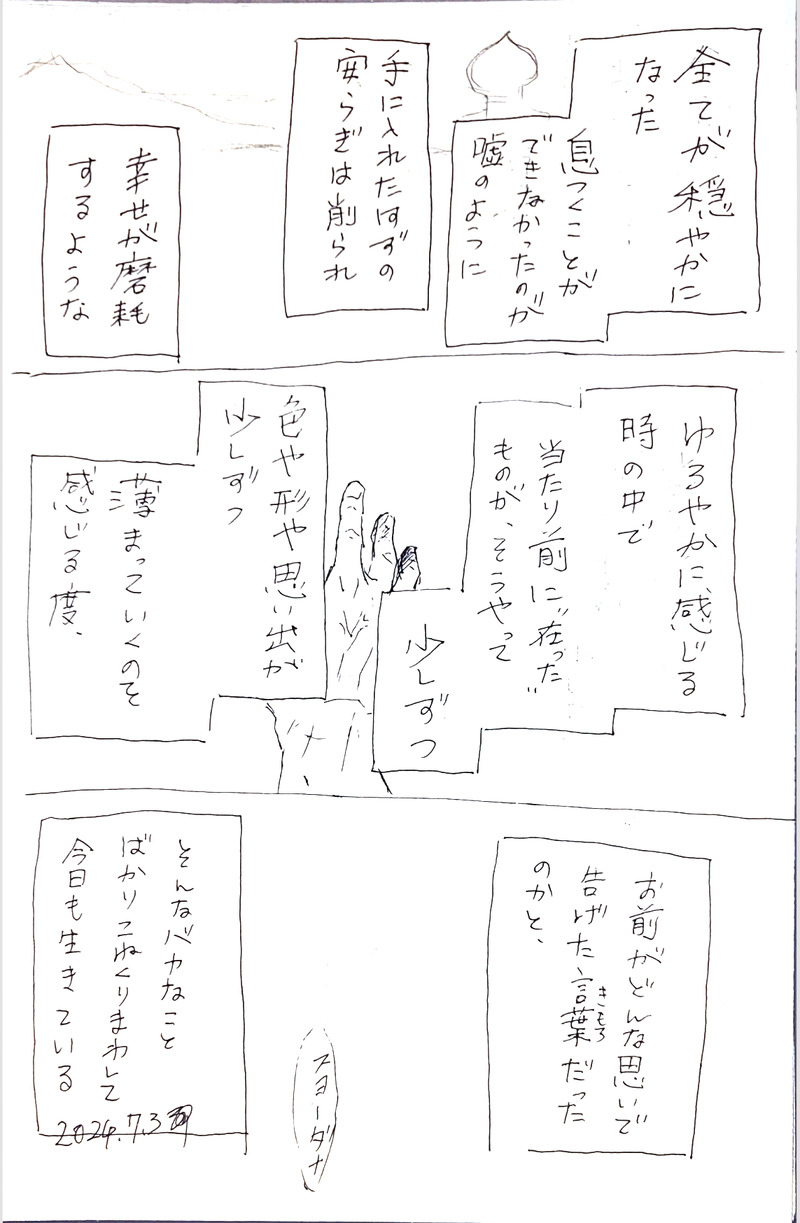 全てが穏やかに
なった
息つくことが
できなかったのが
嘘のように
手に入れたはずの
安らぎは削られ
幸せが磨耗
するような
ゆるやかに、感じる
時の中で
当たり前に〝在った〟
ものが、そうやって
少しずつ
色や形や思い出が
少しずつ
薄まっていくのを
感じる度、
お前がどんな思いで
告げた言葉だった
きもち
のかと、
スヨーダナ
そんなバカなこと
ばかりこねくりまわして
今日も生きている
2024.7.3